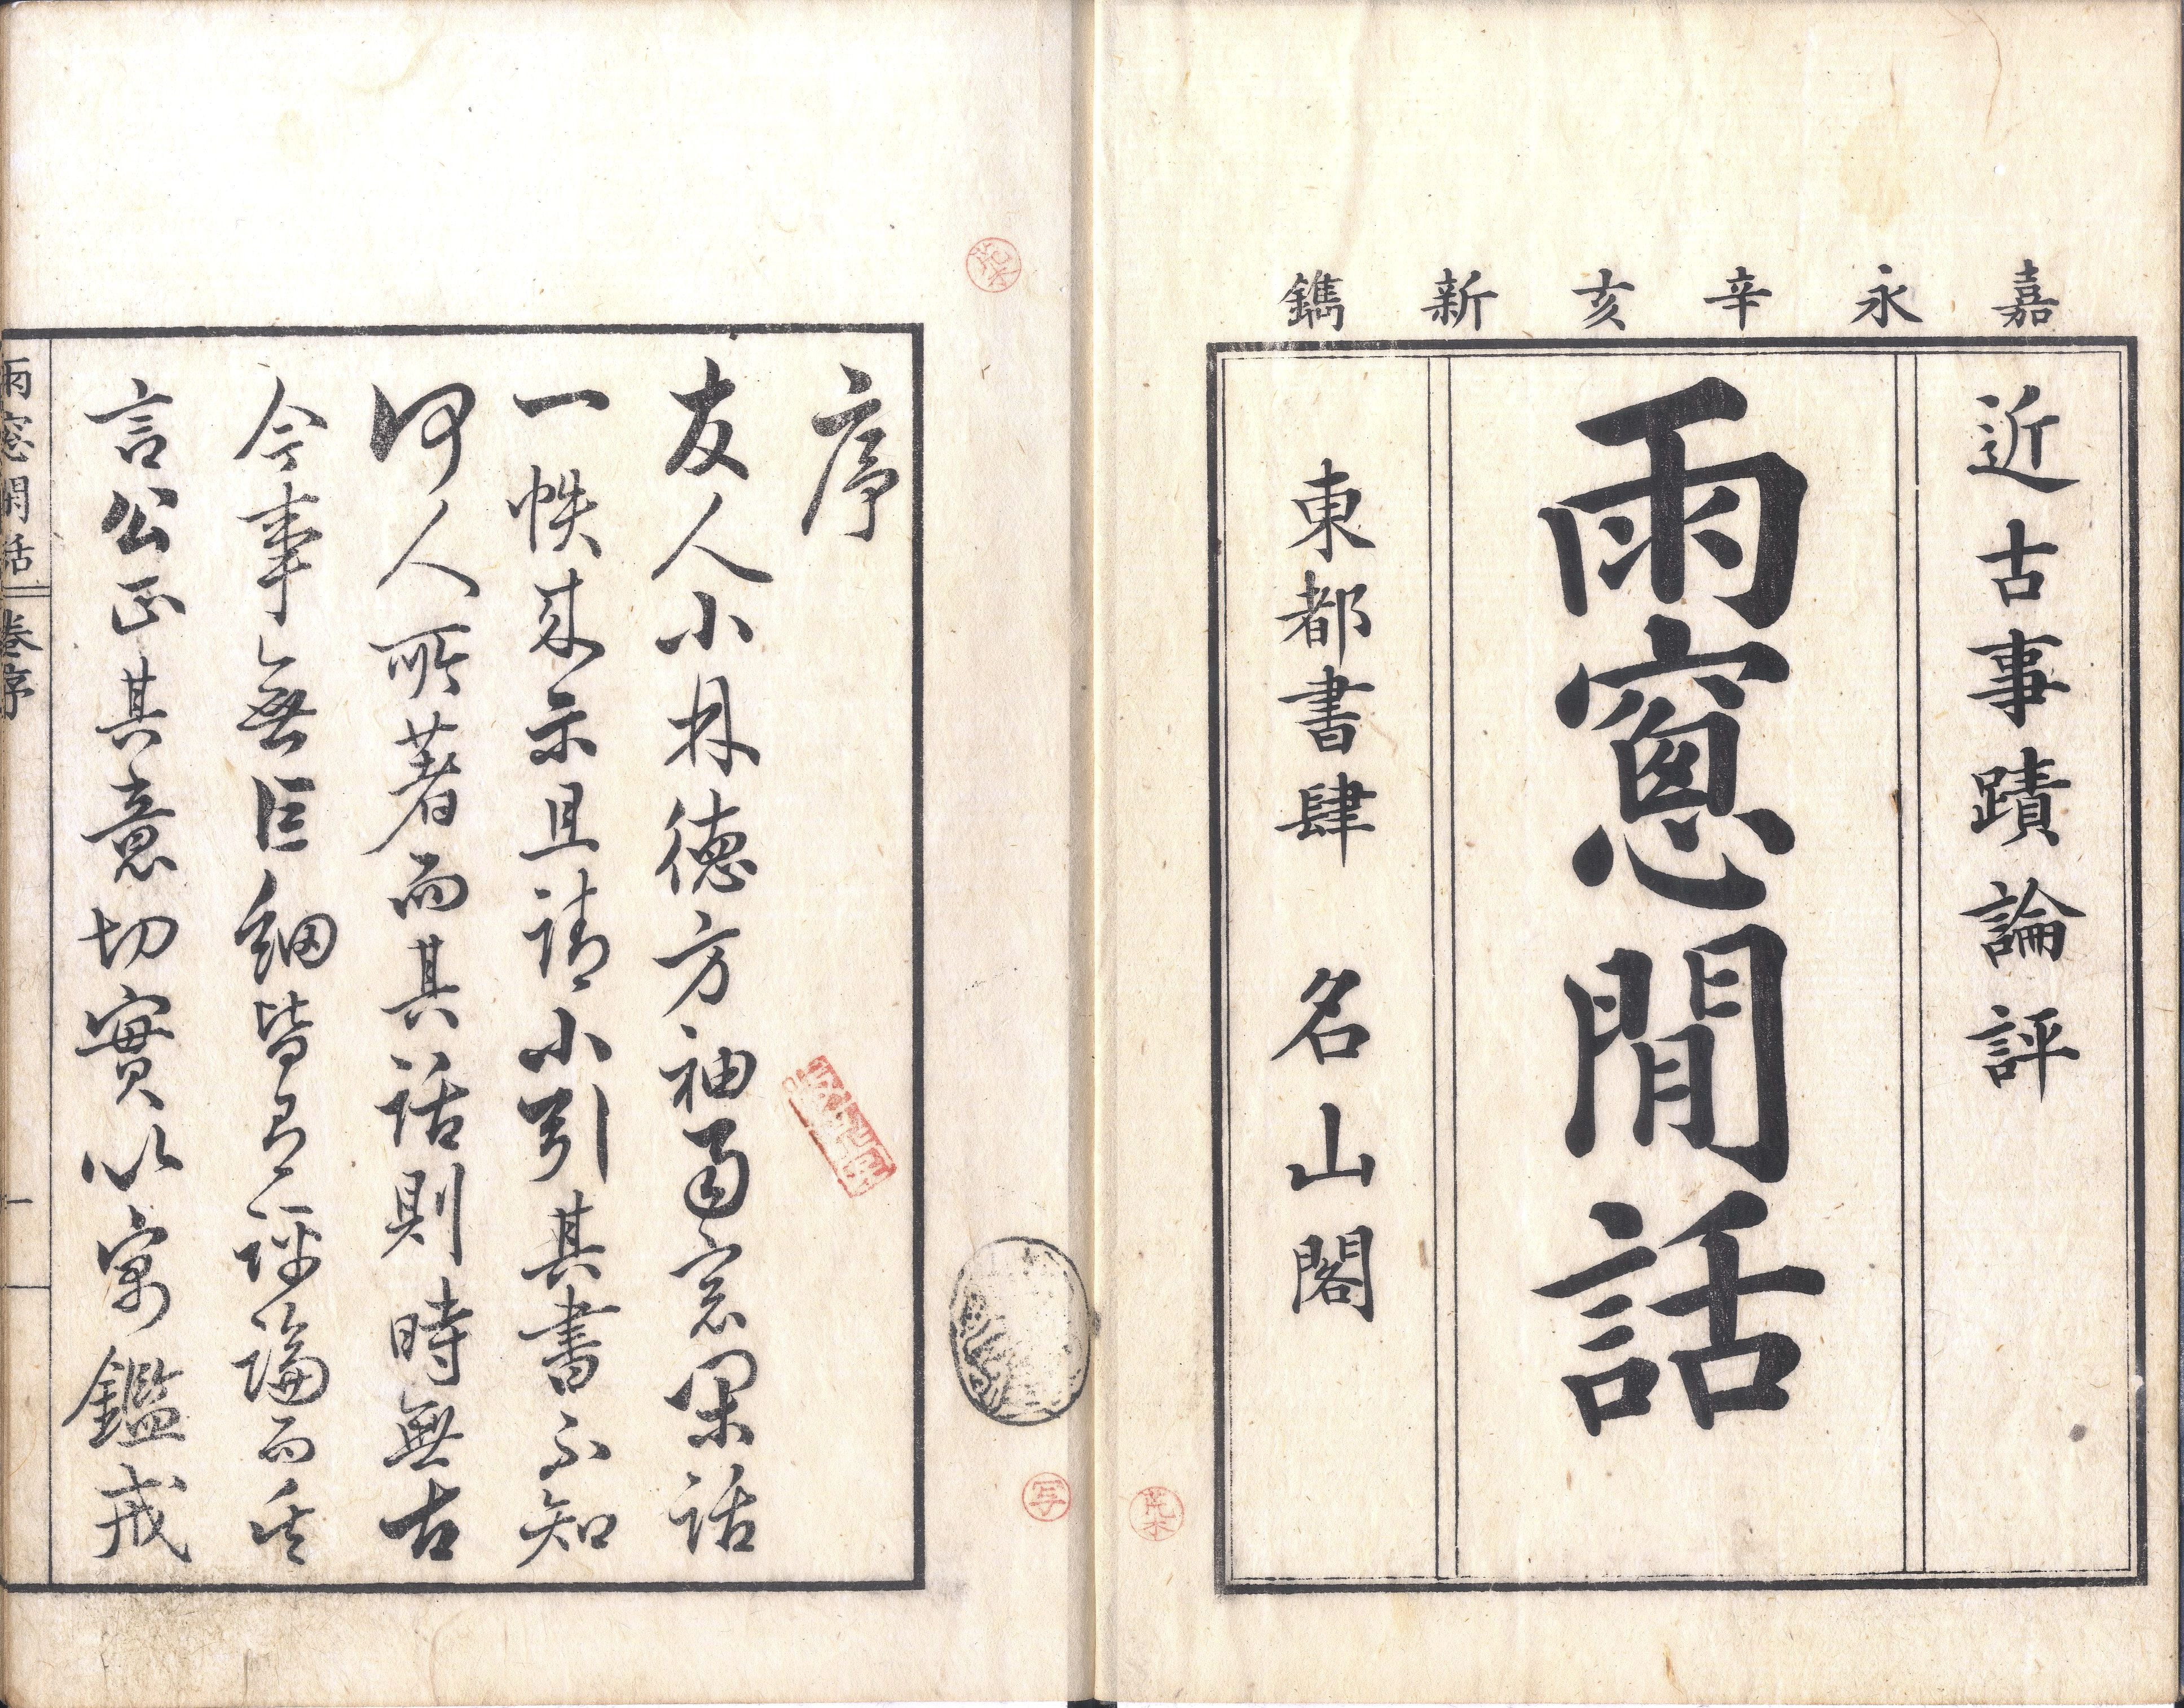 嘉永辛亥新鐫
近古事蹟論評
雨窻閒話
東都書肆 名山閣
序
友人小林德方袖雨窓閑話
一帙来示且請小引其書不知
何人所著而其話則時無古
今事無巨細皆有評論而其
言公正其意切實以寓鑑戒
雨窓閒話 卷序
一